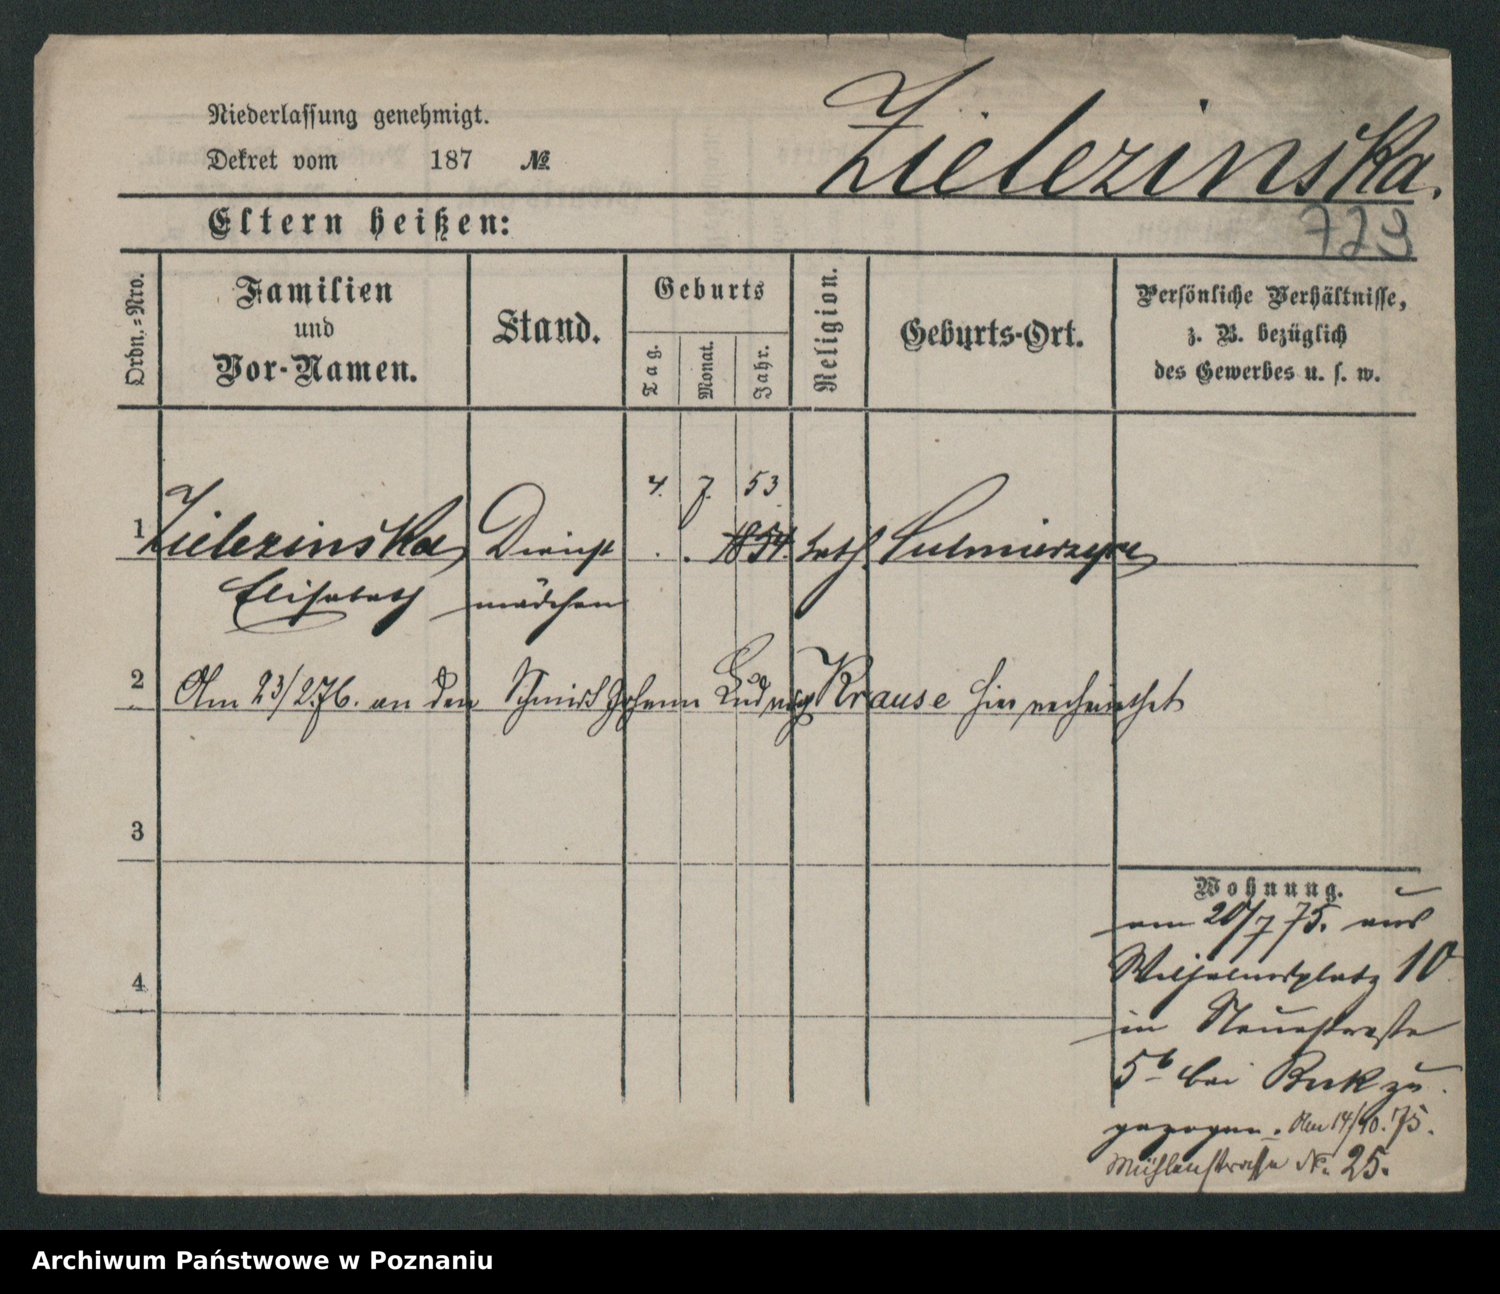 Niederlassung genehmigt.
Dekret vom 187 №
Zielezinska.
Eltern heißen:
779
Ordn.=Nro.
Familien
und
Vor-Namen.
Stand.
Geburts
Tag.
Monat.
Jahr.
Religion.
Geburts-Ort.
Persönliche Verhältnisse,
z. B. bezüglich
des Gewerbes u. s. w.
4. 7. 53
1 Zielezinska Dienst 1854. kath. Sulmierzyce
Elisabeth mädchen
2 Am 23/2.76. an den Schmied Johann Ludwig Krause hier verheirathet
3
4
Wohnung.
am 20/7 75. aus
Wilhelmsplatz 10
in Neuestraße
5b bei Buk zu
gezogen. Am 14/10.75.
Mühlenstraße No. 25.
Archiwum Państwowe w Poznaniu